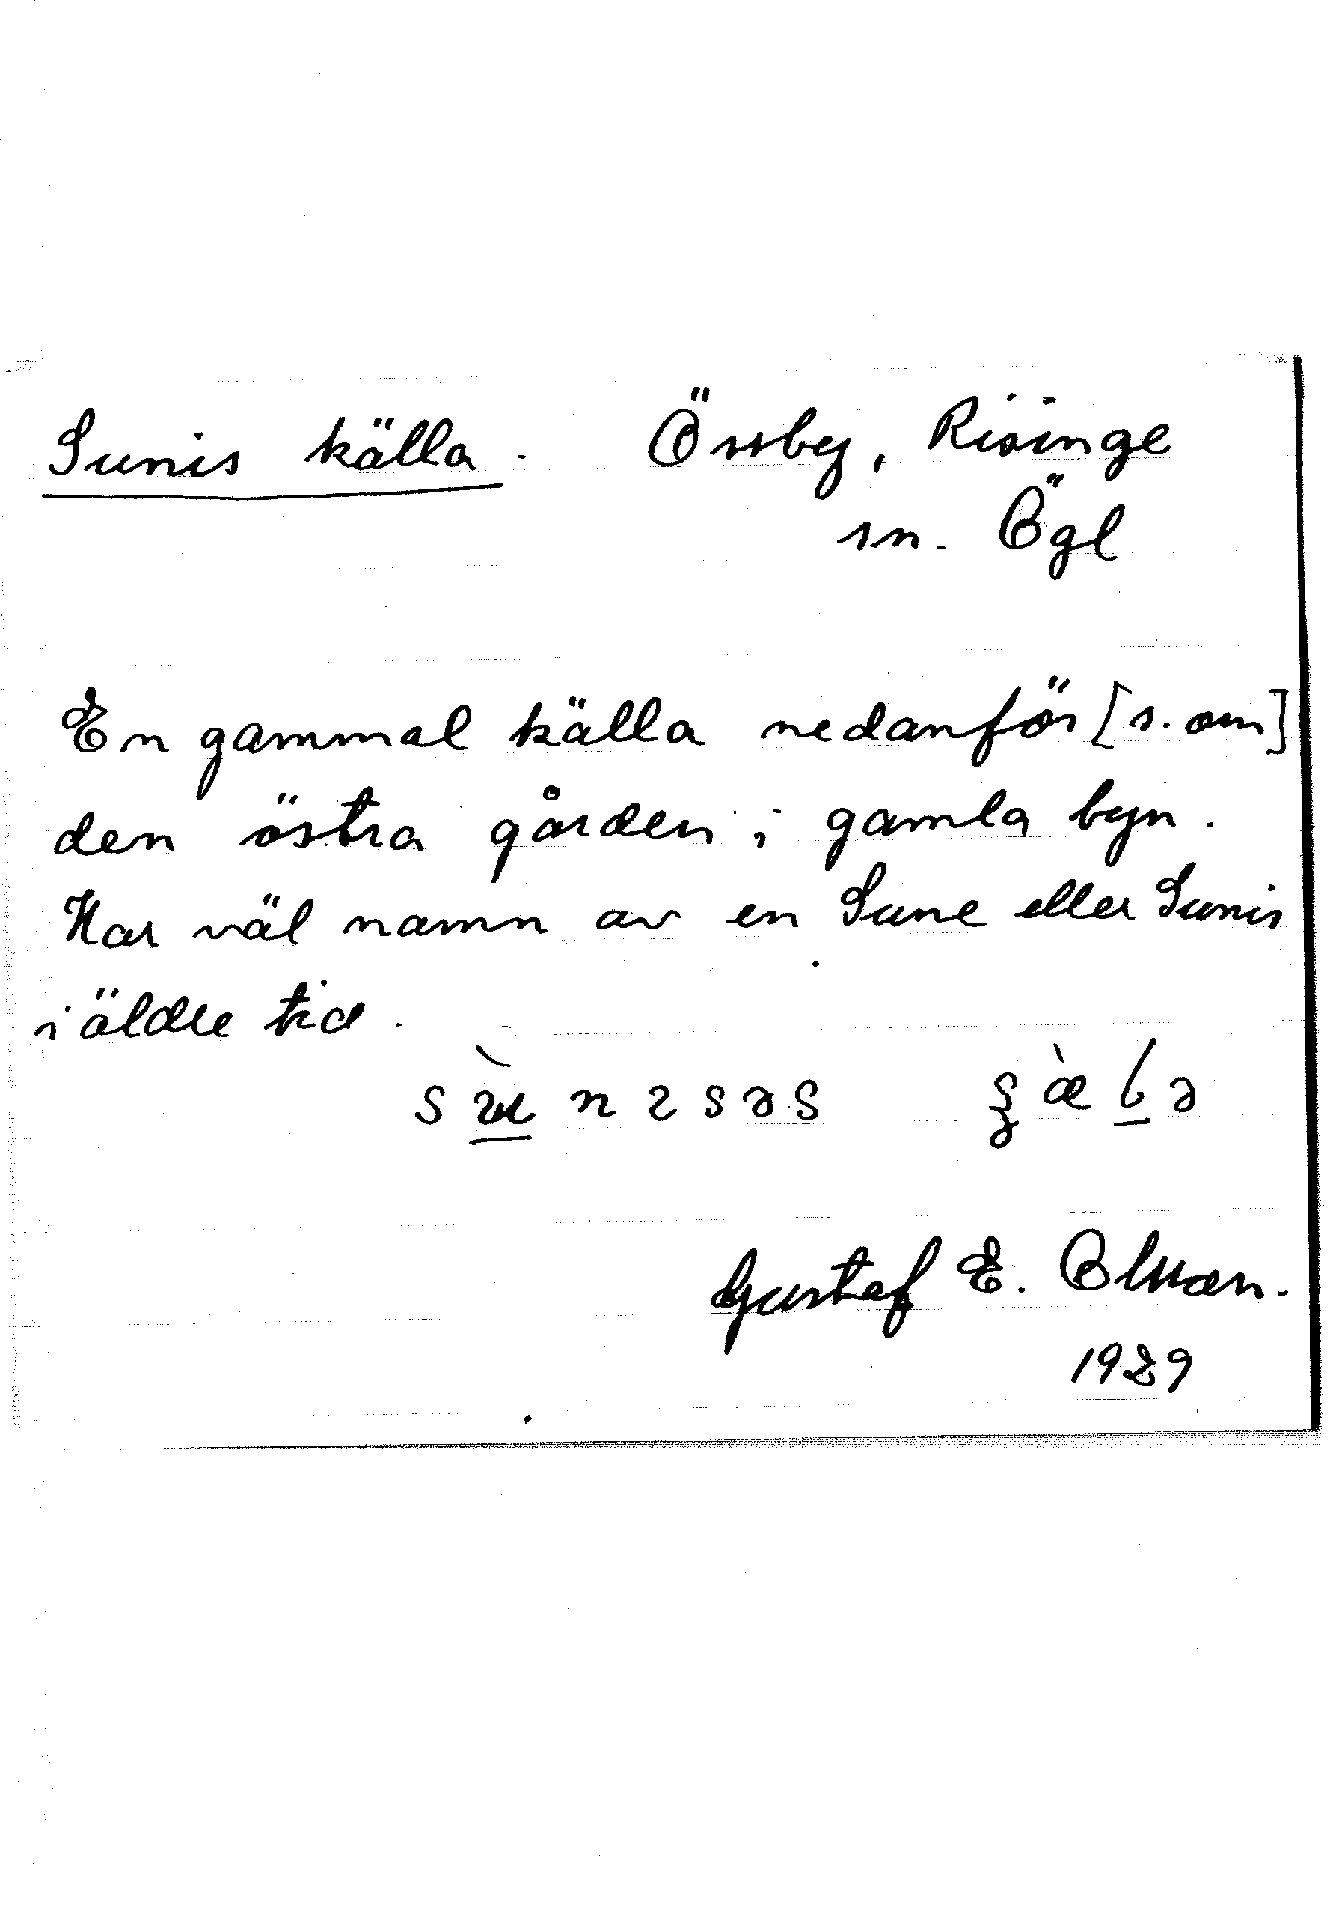 Sunis källa. Össby, Risinge
sn. Ögl
En gammal källa nedanför [s. om]
den östra gården i gamla byn.
Har väl namn av en Sune eller Sunis
i äldre tid.
Gustaf E. Olsson.
1929